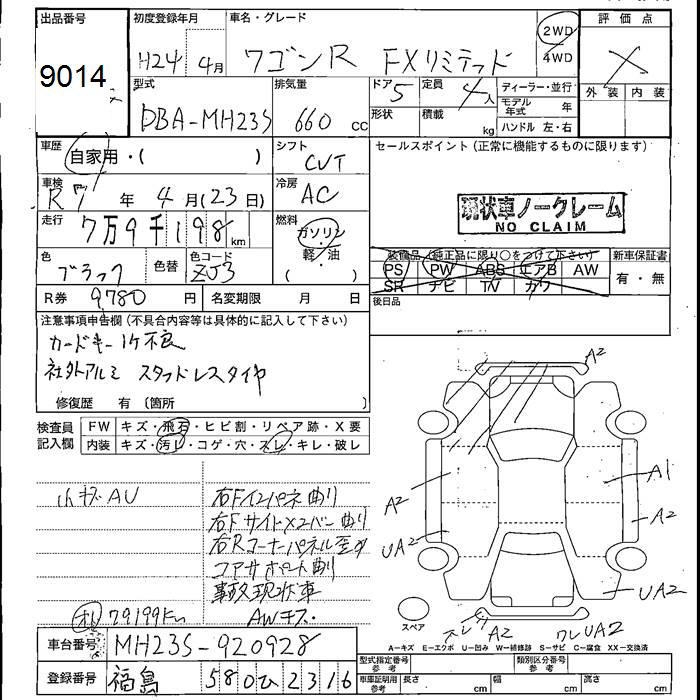 出品番号
9014
初度登録年月
H24 4月
車名・グレード
ワゴンR FXリミテッド
2WD
4WD
評価点
X
外装 内装
型式
DBA-MH23S
排気量
660 cc
ドア
5
形状
定員
4人
積載
kg
ディーラー・並行
モデル年式 年
ハンドル 左・右
車歴
自家用・( )
シフト
CVT
セールスポイント (正常に機能するものに限ります)
現状車ノークレーム
NO CLAIM
車検
R7年 4月(23日)
冷房
AC
走行
7万9千198km
燃料
ガソリン
軽・油
( )
色
ブラック
色替
色コード
ZJ3
装備品 (純正品に限り○をつけて下さい)
PS PW ABS エアB AW
SR ナビ TV カワ
新車保証書
有・無
後日品
R券 9780円
名変期限 月 日
注意事項申告欄 (不具合内容等は具体的に記入して下さい)
カードキー1ケ不良
社外アルミ スタッドレスタイヤ
修復歴 有 〔箇所 〕
検査員記入欄
FW キズ・飛石・ヒビ割・リペア跡・X要
内装 キズ・汚レ・コゲ・穴・スレ・キレ・破レ
小キズAU
右Fインパネ曲り
右Fサイドメンバー曲り
右Rコーナーパネル歪み
コアサポート曲り
事故現状車
AWキズ・
79199km
A2
A1
A2
A2
UA2
UA2
スレ A2
ワレUA2
スペア
A=キズ E=エクボ U=凹み W=補修跡 S=サビ C=腐食 XX=交換済
車台番号
MH23S-920928
登録番号
福島 580 ひ 2316
型式指定番号 参考
類別区分番号 参考
車庫証明用 参考 長さ cm 幅 cm 高さ cm